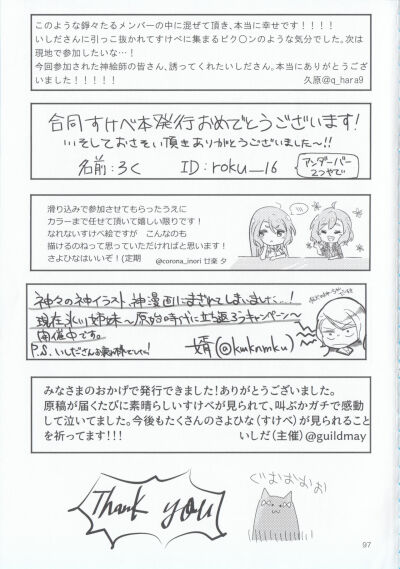 このような錚々たるメンバーの中に混ぜて頂き、本当に幸せです！！！！
いしださんに引っこ抜かれてすけべに集まるピク〇ンのような気分でした。次は
現地で参加したいな…！
今回参加された神絵師の皆さん、誘ってくれたいしださん。本当にありがとうござ
いました！！！！！
久原@q_hara9
合同すけべ本発行おめでとうございます！
…そしておさそい頂きありがとうございました〜!!
名前：ろく ID：roku__16
アンダーバー
2つやで
滑り込みで参加させてもらったうえに
カラーまで任せて頂いて嬉しい限りです！
なれないすけべ絵ですが こんなのも
描けるのねって思っていただければと思います！
さよひなはいいぞ！(定期 @corona_inori 廿楽 夕
神々の神イラスト、神漫画にまざれてしまいました...！
現在氷川姉妹〜原始時代に立ち返ろうキャンペーン〜
開催中です。
P.S. いしださん
婿(@kmknmku)
みなさまのおかげで発行できました！ありがとうございました。
原稿が届くたびに素晴らしいすけべが見られて、叫ぶかガチで感動
して泣いてました。今後もたくさんのさよひな（すけべ）が見られること
を祈ってます！！！ いしだ（主催）@guildmay
Thank you
ぐおおおお
97